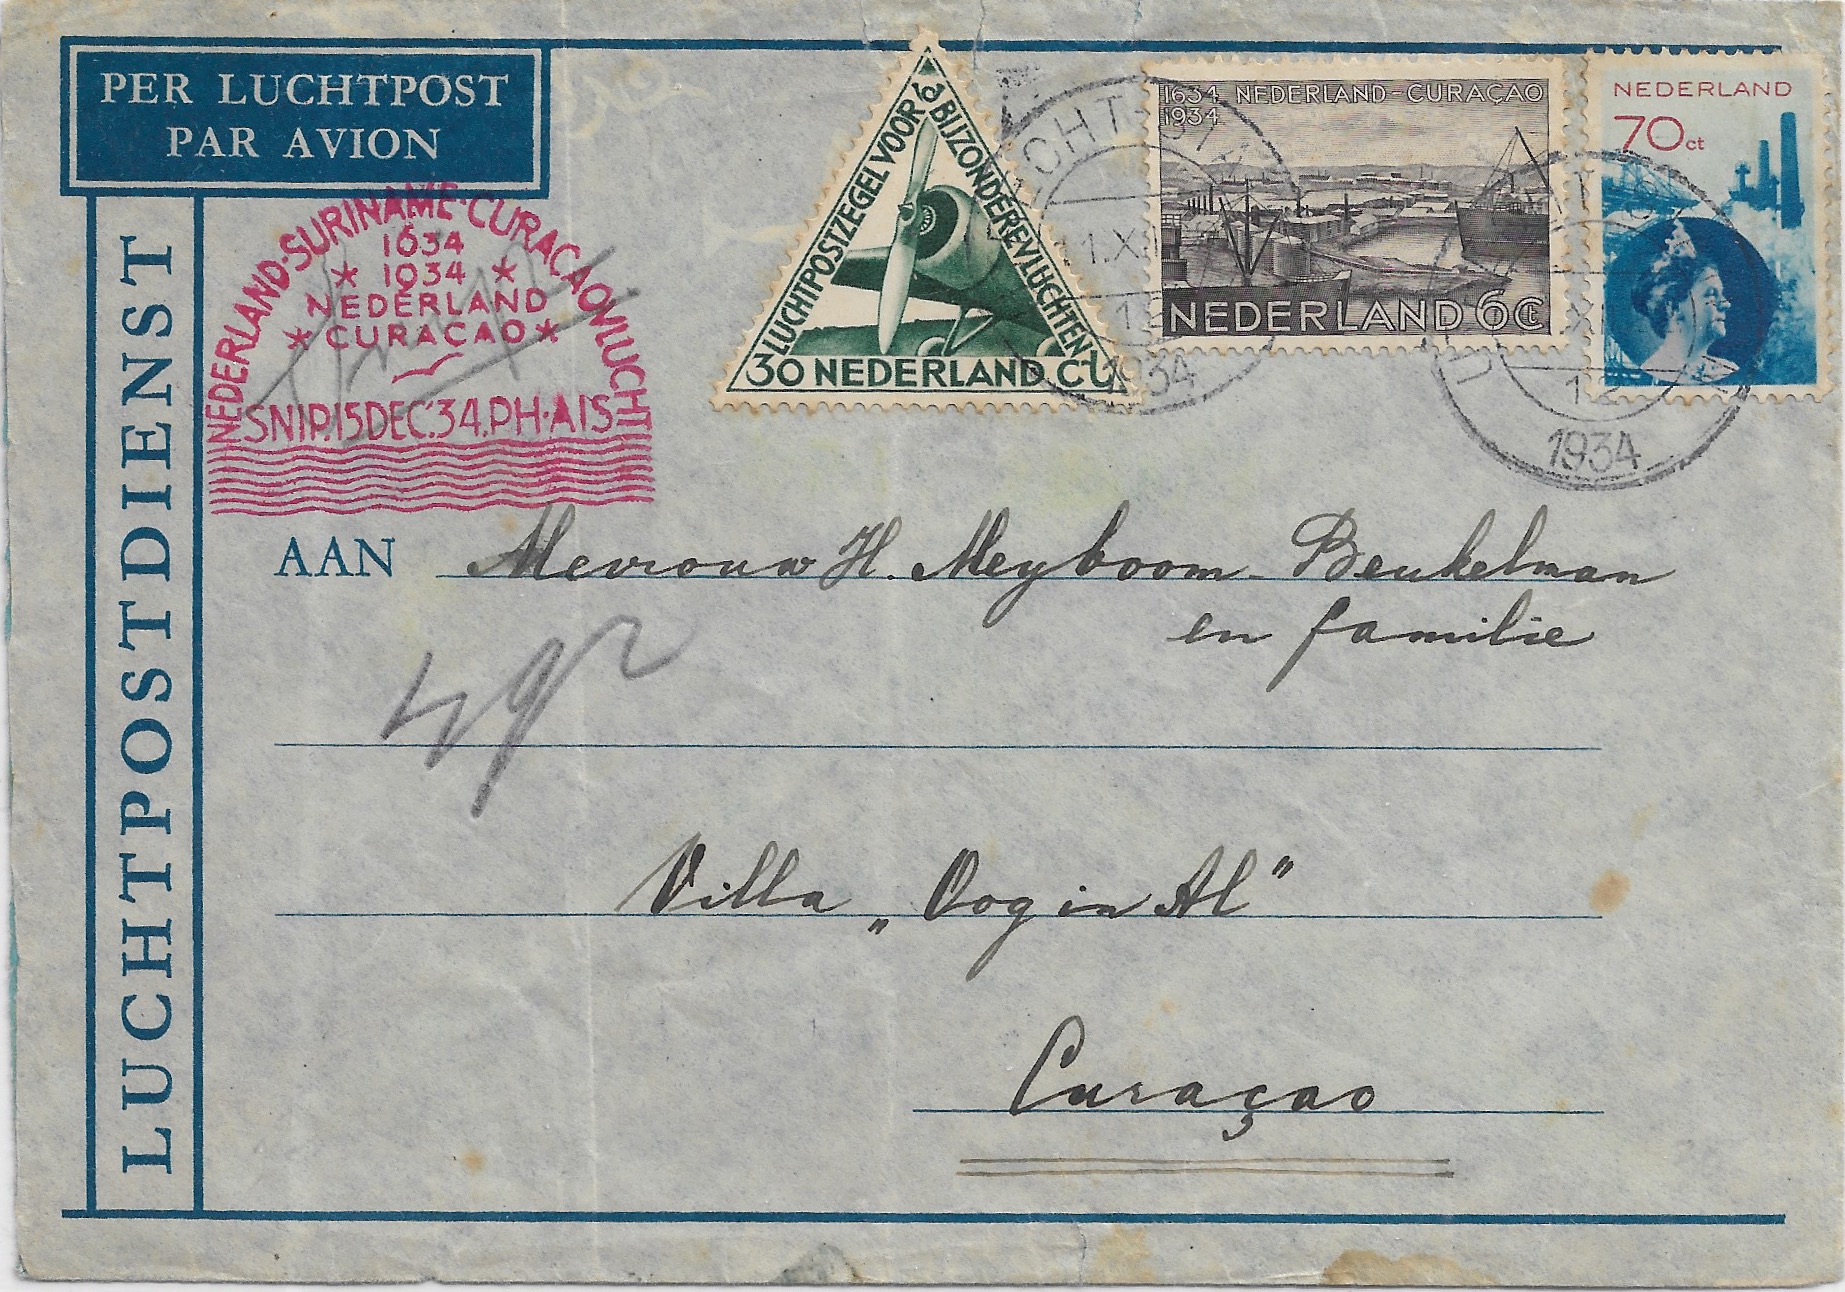 PER LUCHTPOST
PAR AVION
LUCHTPOSTDIENST
NEDERLAND-SURINAME-CURACAOVLUCHT
1634
* 1934 *
NEDERLAND
* CURACAO *
SNIP. 15 DEC.'34. PH-AIS
LUCHTPOSTZEGEL VOOR
BIJZONDERE VLUCHTEN
30 NEDERLAND Ct
1634 NEDERLAND-CURAÇAO
1934
NEDERLAND 6 Ct
NEDERLAND
70 ct
11.XII
1934
12
1934
AAN Mevrouw H. Meyboom-Beukelman
en familie
Villa „Oog in Al"
Curaçao